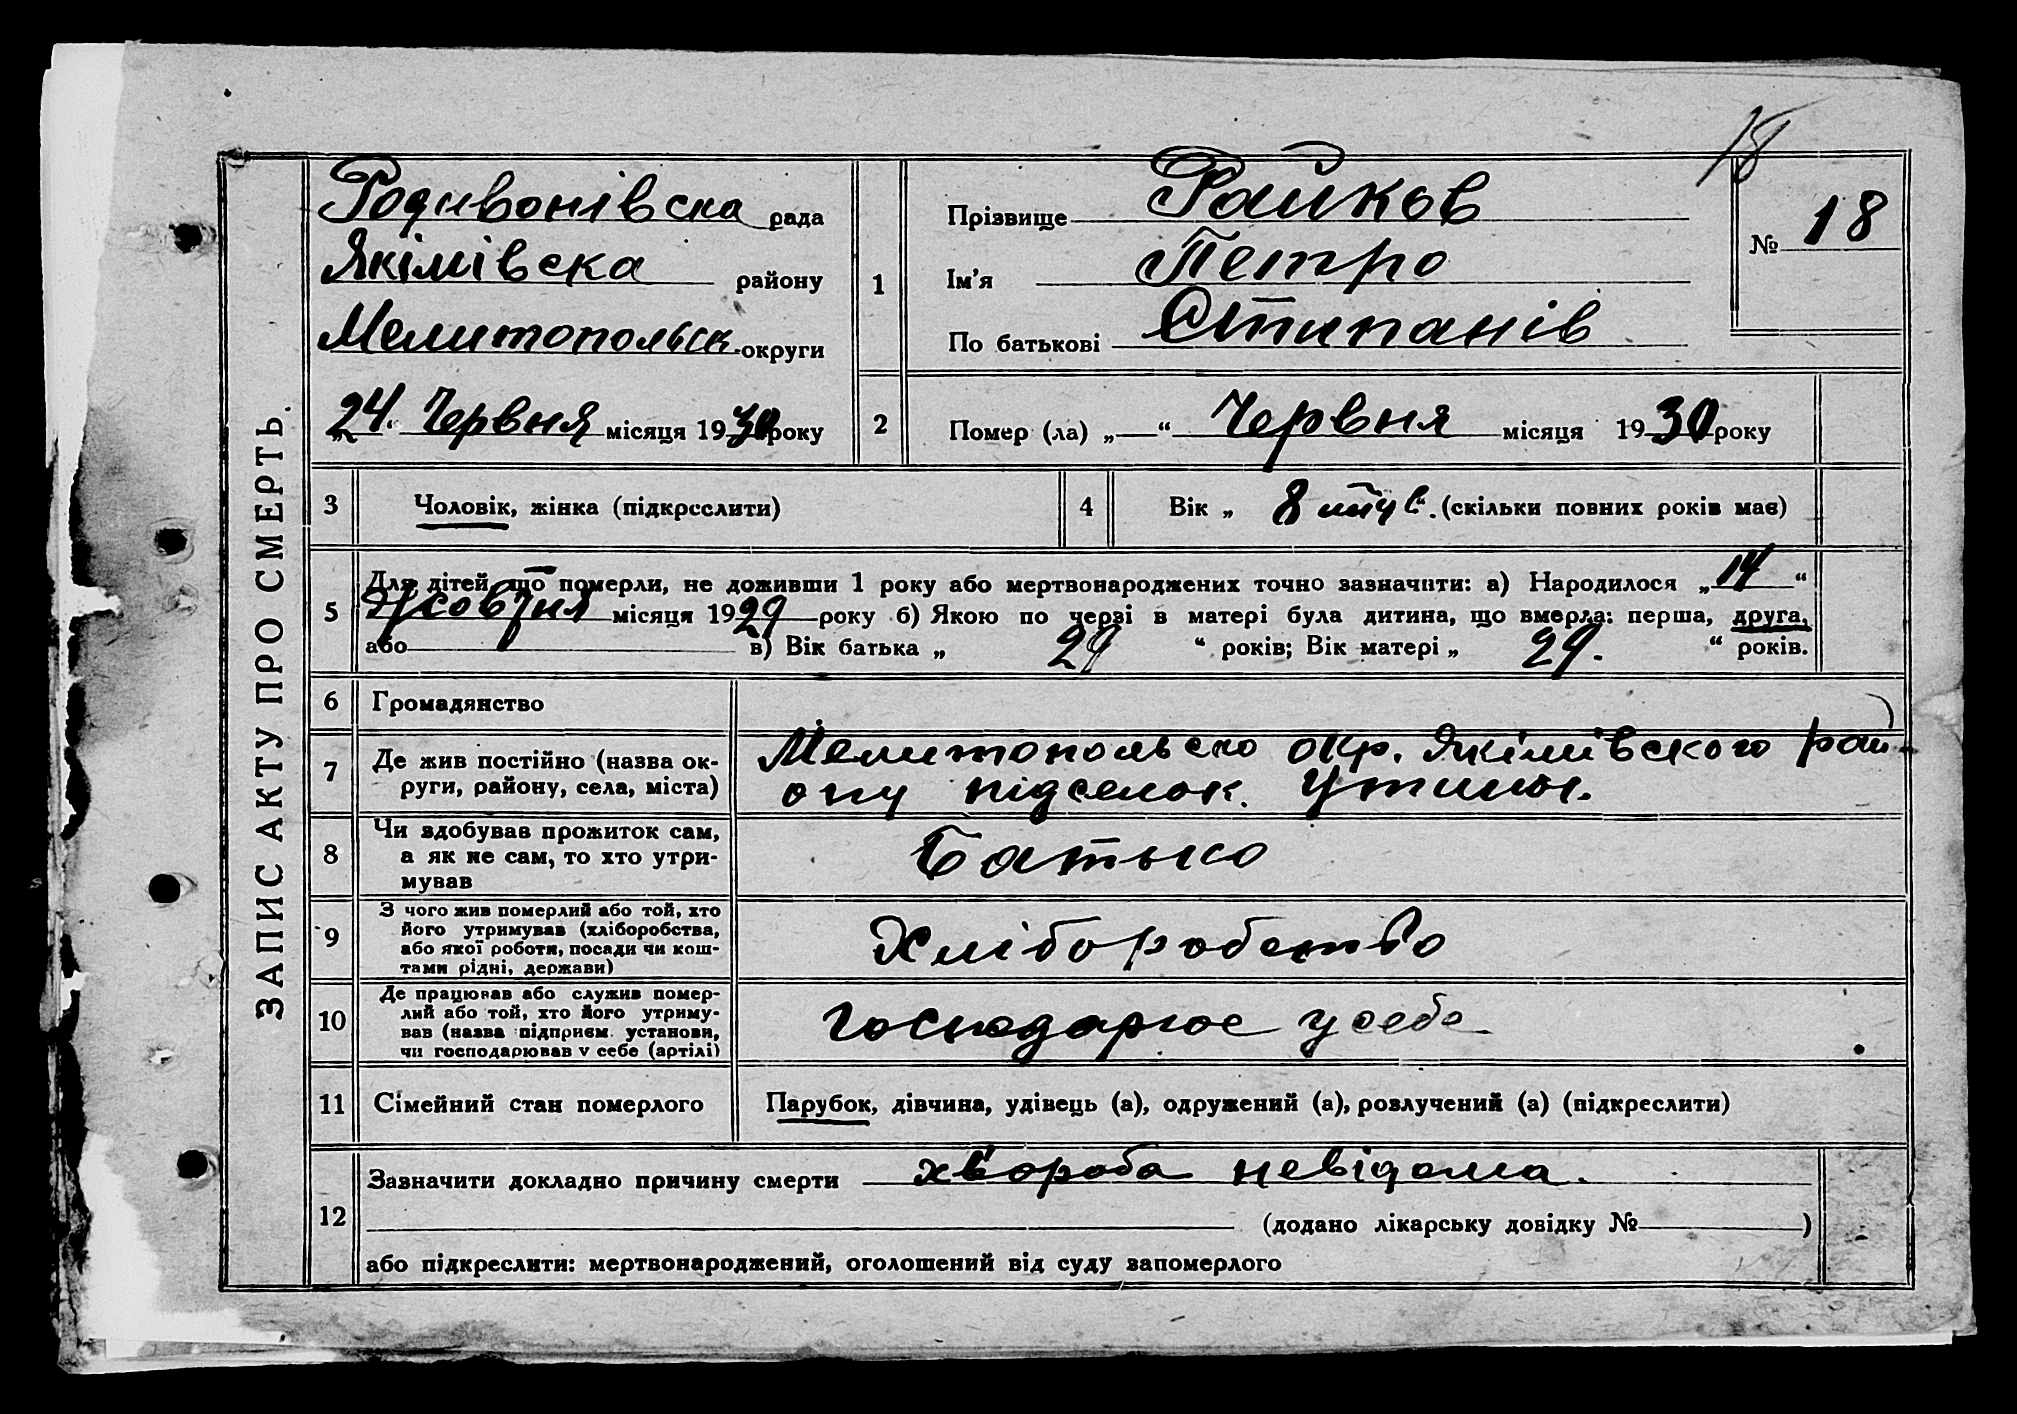 18
ЗАПИС АКТУ ПРО СМЕРТЬ.
Родивонівска рада
Якімівска району
Мелитопольск. округи
„24“ Червня місяця 1930 року
1
Прізвище Райков
Ім’я Петро
По батькові Стипанів
№ 18
2 Помер (ла) „—“ Червня місяця 1930 року
3 Чоловік, жінка (підкреслити)
4 Вік „ 8 “. (скільки повних років має)
5 Для дітей що померли, не доживши 1 року або мертвонароджених точно зазначити: а) Народилося „14“
Жовтня місяця 1929 року б) Якою по черзі в матері була дитина, що вмерла: перша, друга,
або в) Вік батька „ 29 “ років; Вік матері „ 29. “ років.
6 Громадянство
7 Де жив постійно (назва ок-
руги, району, села, міста)
Мелитопольско окр. Якімівского рай-
ону підселок.
8 Чи здобував прожиток сам,
а як не сам, то хто утри-
мував
Батько
9 З чого жив померлий або той, хто
його утримував (хліборобства,
або якої роботи, посади чи кош-
тами рідні, держави)
Хліборобство
10 Де працював або служив помер-
лий або той, хто його утриму-
вав (назва підприєм. установи,
чи господарював у себе (артілі)
Господарює у себе
11 Сімейний стан померлого
Парубок, дівчина, удівець (а), одружений (а), розлучений (а) (підкреслити)
12 Зазначити докладно причину смерти хвороба невідома.
(додано лікарську довідку № )
або підкреслити: мертвонароджений, оголошений від суду запомерлого